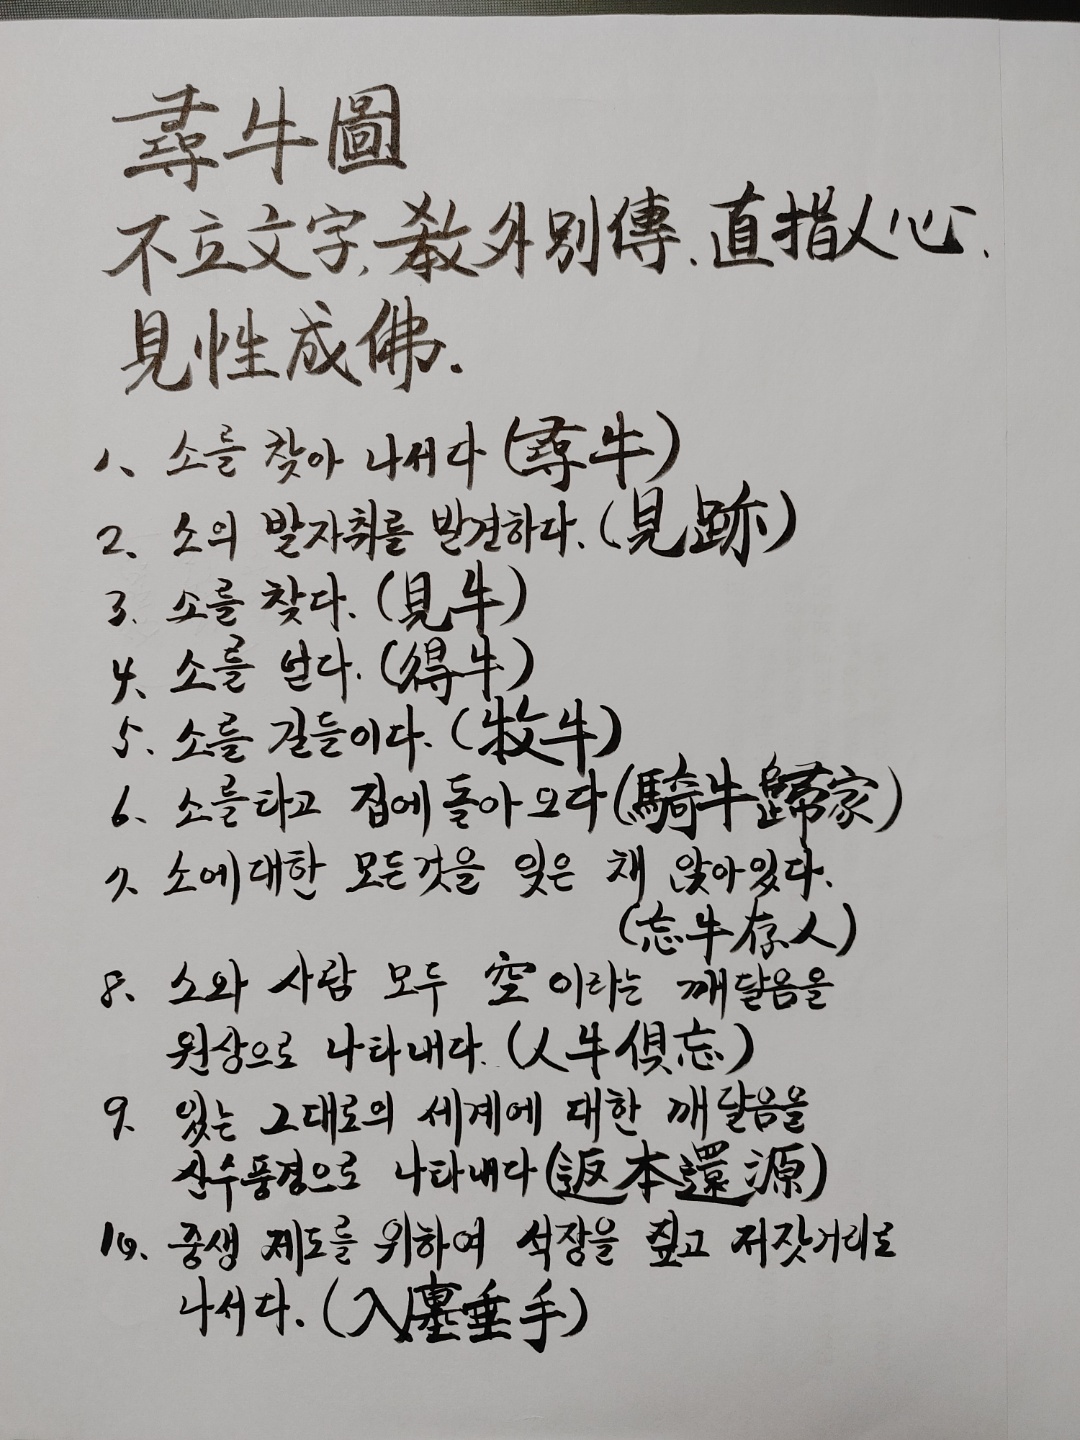 尋牛圖
不立文字, 敎外別傳, 直指人心,
見性成佛.
1. 소를 찾아 나서다 (尋牛)
2. 소의 발자취를 발견하다. (見跡)
3. 소를 찾다. (見牛)
4. 소를 얻다. (得牛)
5. 소를 길들이다. (牧牛)
6. 소를타고 집에 돌아오다 (騎牛歸家)
7. 소에대한 모든것을 잊은 채 앉아있다.
(忘牛存人)
8. 소와 사람 모두 空이라는 깨달음을
원상으로 나타내다. (人牛俱忘)
9. 있는 그대로의 세계에 대한 깨달음을
산수풍경으로 나타내다 (返本還源)
10. 중생 제도를 위하여 석장을 짚고 저잣거리로
나서다. (入廛垂手)